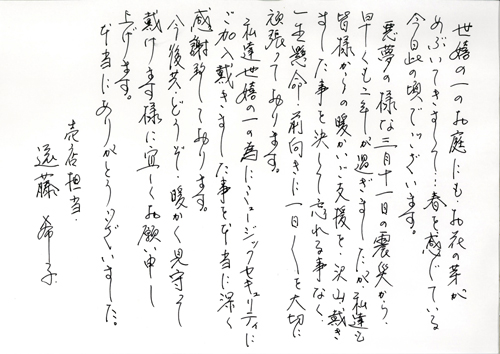 世嬉の一のお庭にも、お花の芽が
めぶいてきまして…春を感じている
今日此の頃でございます。
悪夢の様な三月十一日の震災から、
早くも二年が過ぎましたが、私達も
皆様からの暖かいご支援を、沢山、戴き
ました事を決して忘れる事なく、
一生懸命、前向きに一日一日を大切に
頑張っております。
私達世嬉の一の為にミュージックセキュリティに
ご加入戴きました事を本当に深く
感謝致しております。
今後共、どうぞ、暖かく見守って
戴けます様に宜しくお願い申し
上げます。
本当にありがとうございました。
売店担当
遠藤 希子